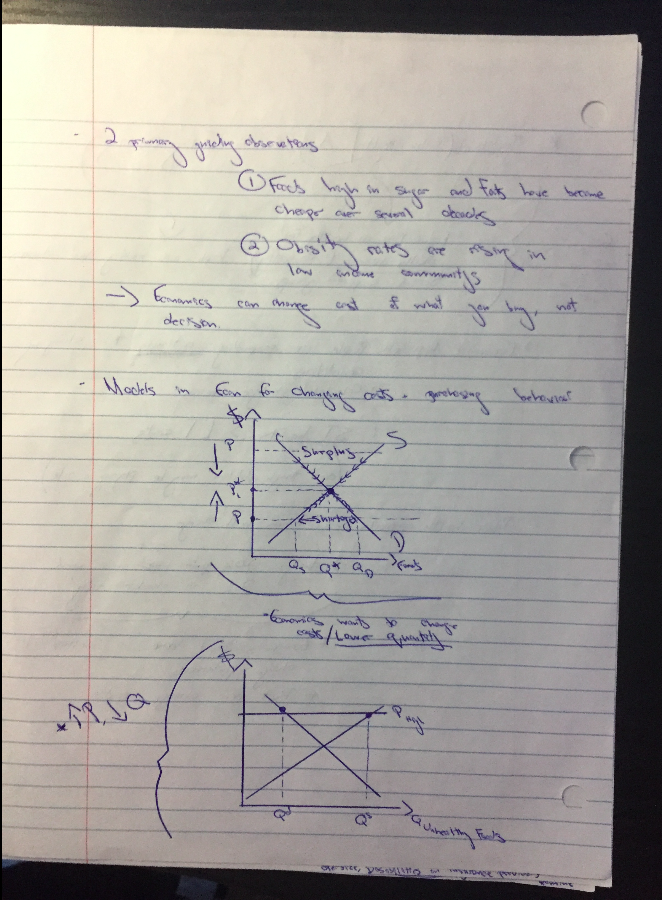 - 2 primary guiding observations
① Foods high in sugar and fats have become
cheaper over several decades
② Obisity rates are rising in
low income communitys
→ Economics can change cost of what you buy, not
decision.
- Models in Econ for changing costs + purchasing behavior
$
P
Surplus
S
↓
↑ P₁*
P
← Shortage
D
Qs Q* QD Foods
- Economics wants to change
costs / Lower quantity
$
* ↑P, ↓Q
P High
Qd Qs Q Unhealthy Foods